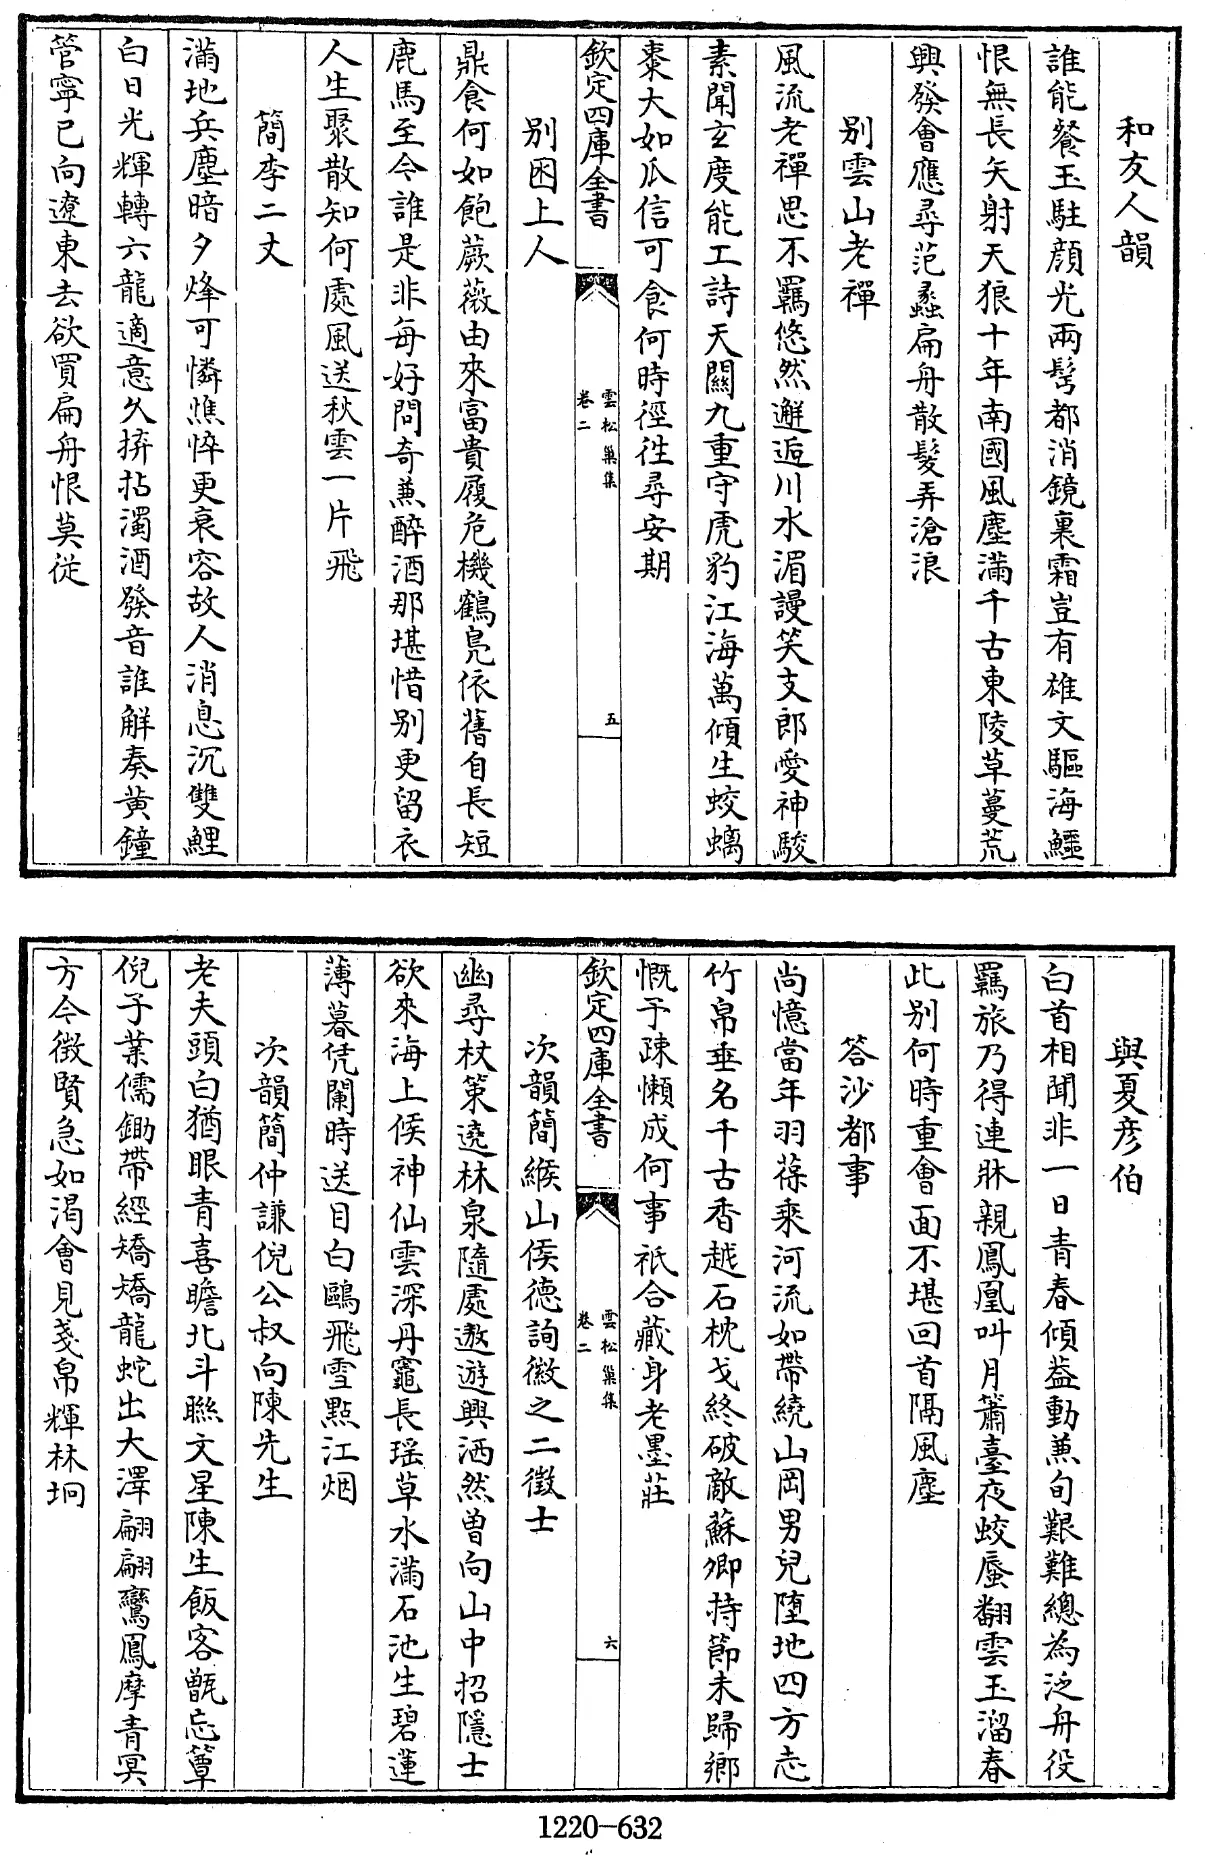 和友人韻
誰能餐玉駐顔光兩髩都消鏡裏霜豈有雄文驅海鱷
恨無長矢射天狼十年南國風塵滿千古東陵草蔓荒
興發會應尋范蠡扁舟散髮弄滄浪
别雲山老禪
風流老禪思不羈悠然邂逅川水湄謾笑支郎愛神駿
素聞玄度能工詩天關九重守虎豹江海萬傾生蛟螭
棗大如瓜信可食何時徑徃尋安期
欽定四庫全書
雲松巢集
卷二
五
别囦上人
鼎食何如飽蕨薇由來富貴履危機鶴鳬依舊自長短
鹿馬至今誰是非每好問奇兼醉酒那堪惜别更留衣
人生聚散知何處風送秋雲一片飛
簡李二丈
滿地兵塵暗夕烽可憐憔悴更衰容故人消息沉雙鯉
白日光輝轉六龍適意久拚拈濁酒發音誰解奏黄鐘
管寧已向遼東去欲買扁舟恨莫從
與夏彦伯
白首相聞非一日青春傾葢動兼旬艱難總為泛舟役
羈旅乃得連牀親鳳凰叫月簫臺夜蛟蜃翻雲玉溜春
此别何時重會面不堪回首隔風塵
答沙都事
尚憶當年羽葆乘河流如帶繞山岡男兒墮地四方志
竹帛垂名千古香越石枕戈終破敵蘇卿持節未歸鄉
慨予疎懶成何事祇合藏身老墨莊
欽定四庫全書
雲松巢集
卷二
六
次韻簡緱山侯德詢徽之二徵士
幽尋杖策遶林泉隨處遨遊興洒然曽向山中招隱士
欲來海上候神仙雲深丹竈長瑶草水滿石池生碧蓮
薄暮凭闌時送目白鷗飛雪點江烟
次韻簡仲謙倪公叔向陳先生
老夫頭白猶眼青喜瞻北斗聮文星陳生飯客甑忘簞
倪子業儒鋤帶經矯矯龍蛇出大澤翩翩鸞鳳摩青冥
方今徴賢急如渴會見戔帛輝林坰
1220-632